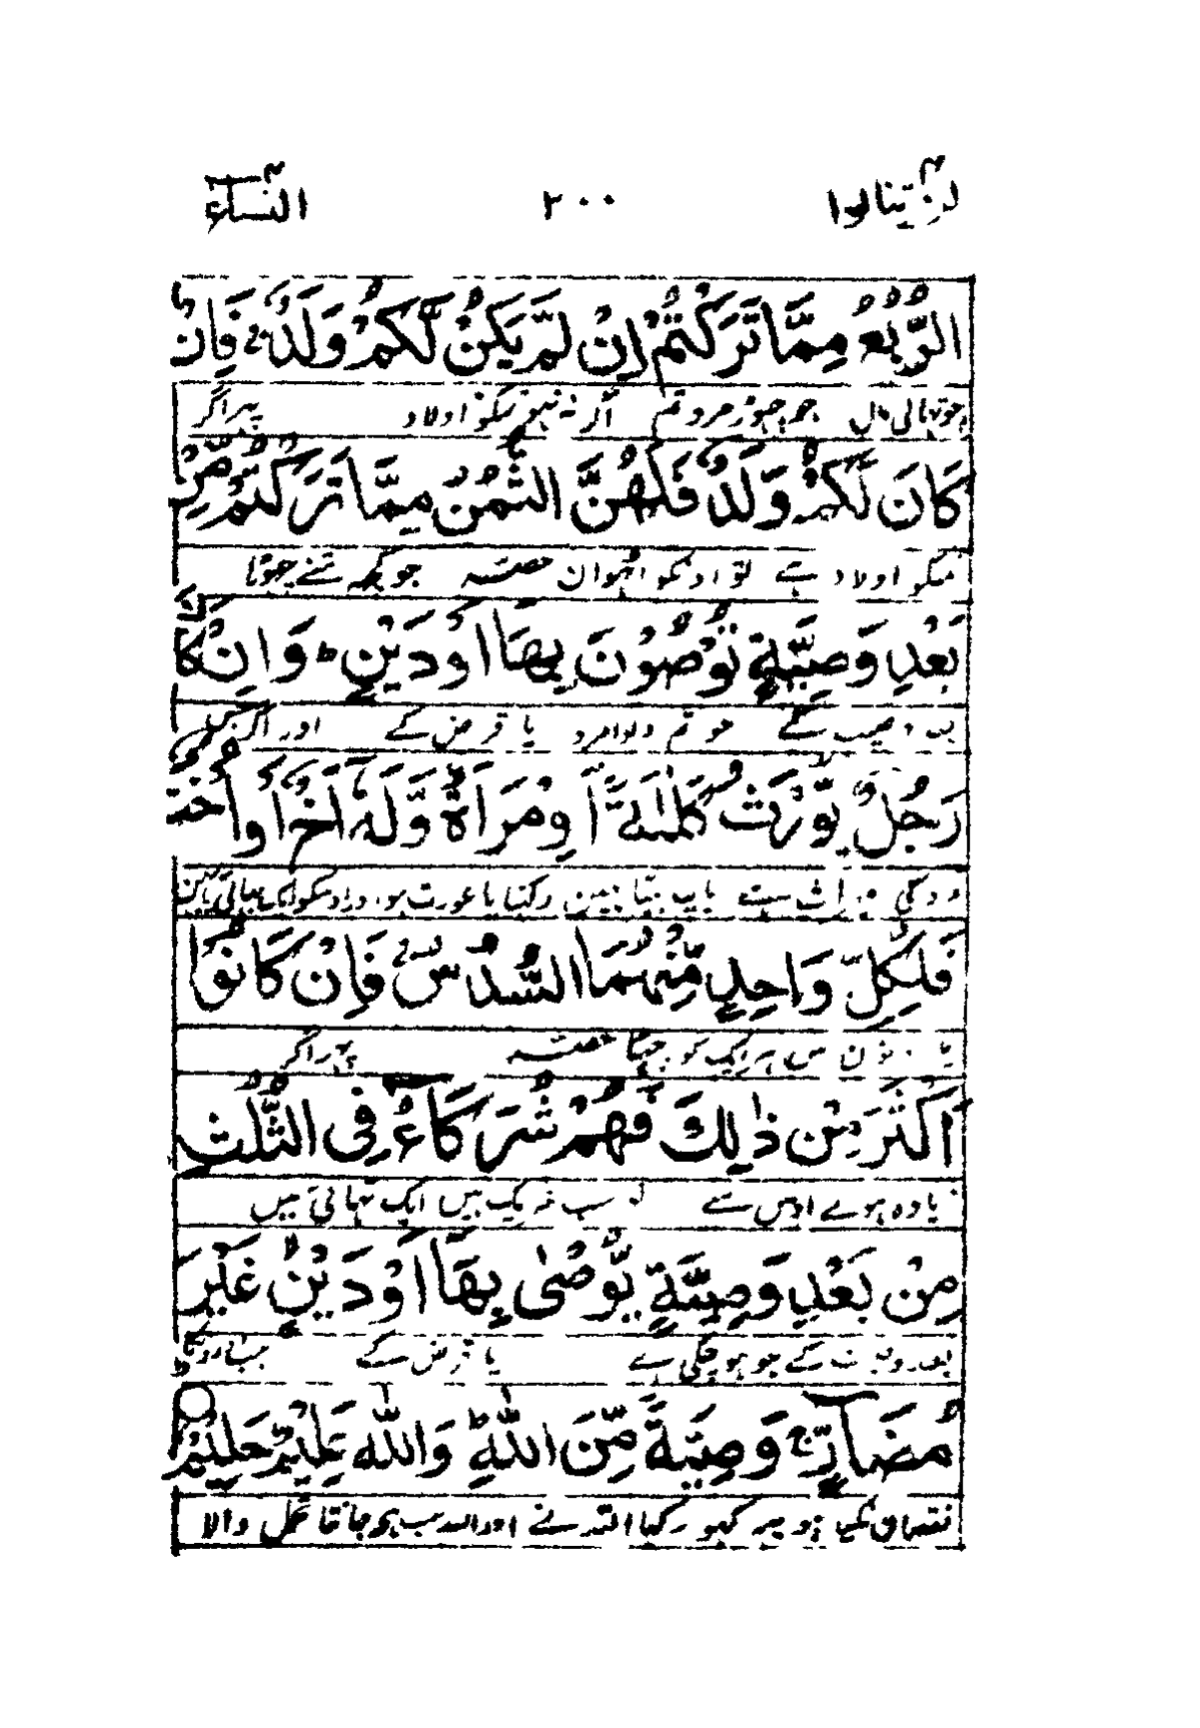 لن تنالوا ۴ ۲۰۰ النساء ۴
الرُّبُعُ مِمَّا تَرَكْتُمْ اِنْ لَّمْ يَكُنْ لَّكُمْ وَلَدٌ ۚ فَاِنْ
چوتھائی مال جو چھوڑ مرو تم اگر نہ ہو تمکو اولاد پھر اگر
كَانَ لَكُمْ وَلَدٌ فَلَهُنَّ الثُّمُنُ مِمَّا تَرَكْتُمْ مِّنْ
تمکو اولاد ہے تو اونکو آٹھواں حصہ جو کچھ تمنے چھوڑا
بَعْدِ وَصِيَّةٍ تُوْصُوْنَ بِهَا اَوْ دَيْنٍ ؕ وَاِنْ كَانَ
بعد وصیت کے جو تم دلوامرو یا قرض کے اور اگر جس
رَجُلٌ يُّوْرَثُ كَلٰلَةً اَوِ مْرَاَةٌ وَّلَهٗ اَخٌ اَوْ اُخْتٌ
مرد کی میراث ہے باپ بیٹا نہیں رکھتا یا عورت ہو اور اوسکو ایک بھائی یا بہن
فَلِكُلِّ وَاحِدٍ مِّنْهُمَا السُّدُسُ ۚ فَاِنْ كَانُوْٓا
ہر ایک کو چھٹا حصہ پھر اگر
اَكْثَرَ مِنْ ذٰلِكَ فَهُمْ شُرَكَآءُ فِى الثُّلُثِ
زیادہ ہوے اوس سے تو سب شریک ہیں ایک تہائی میں
مِنْ بَعْدِ وَصِيَّةٍ يُّوْصٰى بِهَآ اَوْ دَيْنٍ ۙ غَيْرَ
بعد وصیت کے جو ہو چکی ہے یا قرض کے جب اورونکا
مُضَآرٍّ ۚ وَصِيَّةً مِّنَ اللّٰهِ ؕ وَاللّٰهُ عَلِيْمٌ حَلِيْمٌ
نقصان نکیا ہو یہ کہہ رکھا اللہ نے اور اللہ سب کچھ جانتا تحمل والا